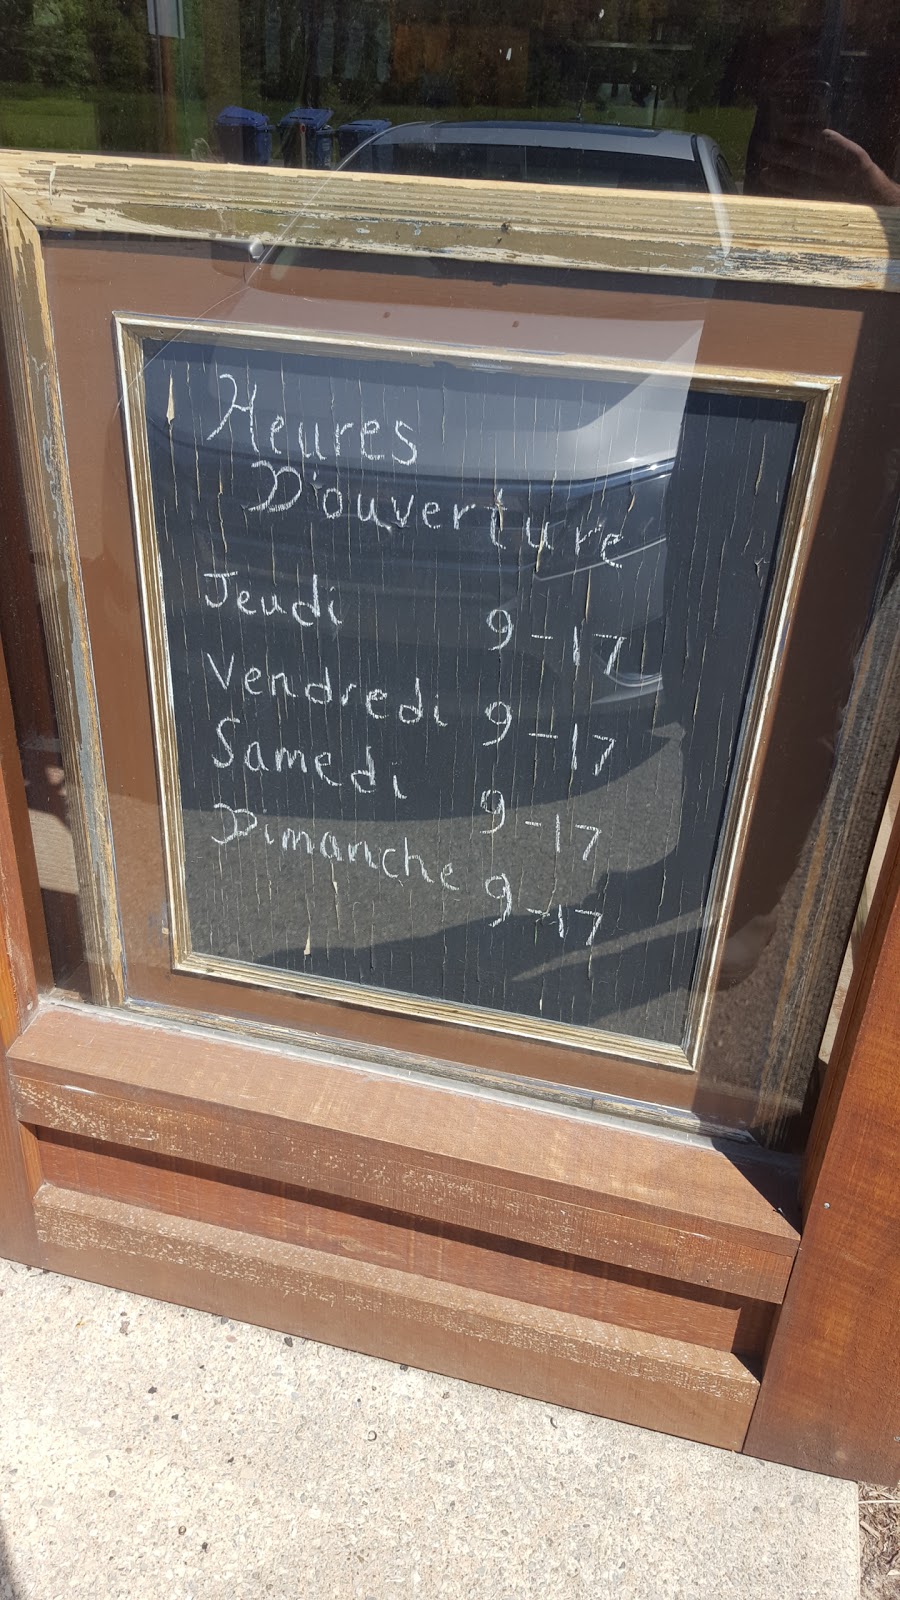 Heures
D'ouverture
Jeudi 9-17
Vendredi 9-17
Samedi 9-17
Dimanche 9-17